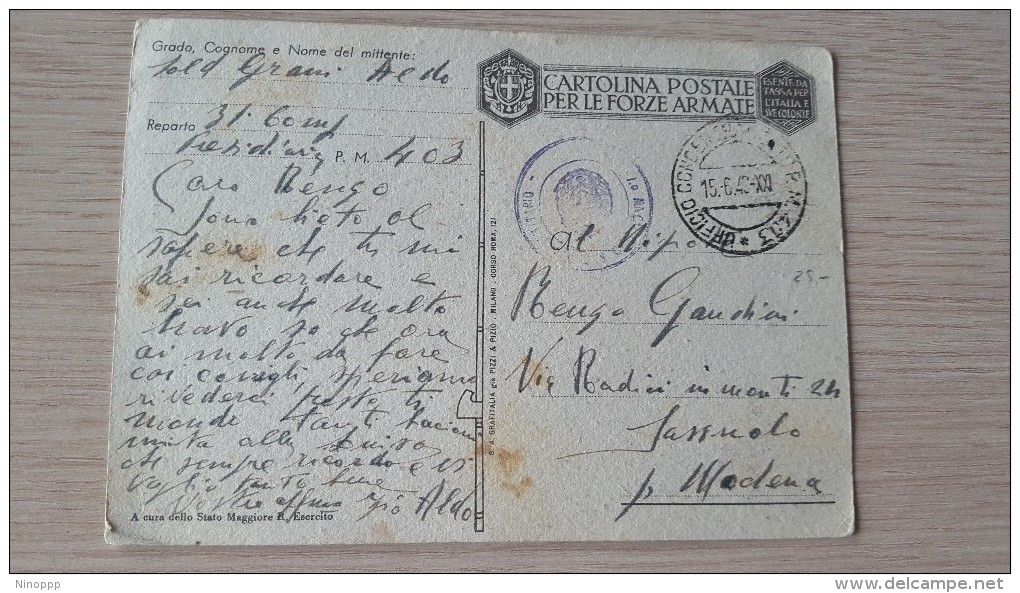 Grado, Cognome e Nome del mittente:
Aldo
Reparto 31ª Comp
P. M. 403
Caro Renzo
sono lieto di
sapere che tu mi
sai ricordare e
sei anche molto
bravo so che ora
ai molto da fare
coi conigli, speriamo
rivederci presto ti
mando tanti bacioni
unita alla Luisa
che sempre ricordo e vi
voglio tanto bene
Vostro affmo Zio Aldo
A cura dello Stato Maggiore R. Esercito
S. A. GRAFITALIA già PIZZI & PIZIO - MILANO - CORSO ROMA, 121
CARTOLINA POSTALE
PER LE FORZE ARMATE
ESENTE DA
TASSA PER
L'ITALIA E
SUE COLONIE
UFFICIO
15.6.43-XXI
al Nipo
Renzo Gandini
Via Radici in monti 24
Sassuolo
p. Modena
25.-
Ninoppp
delcampe.net